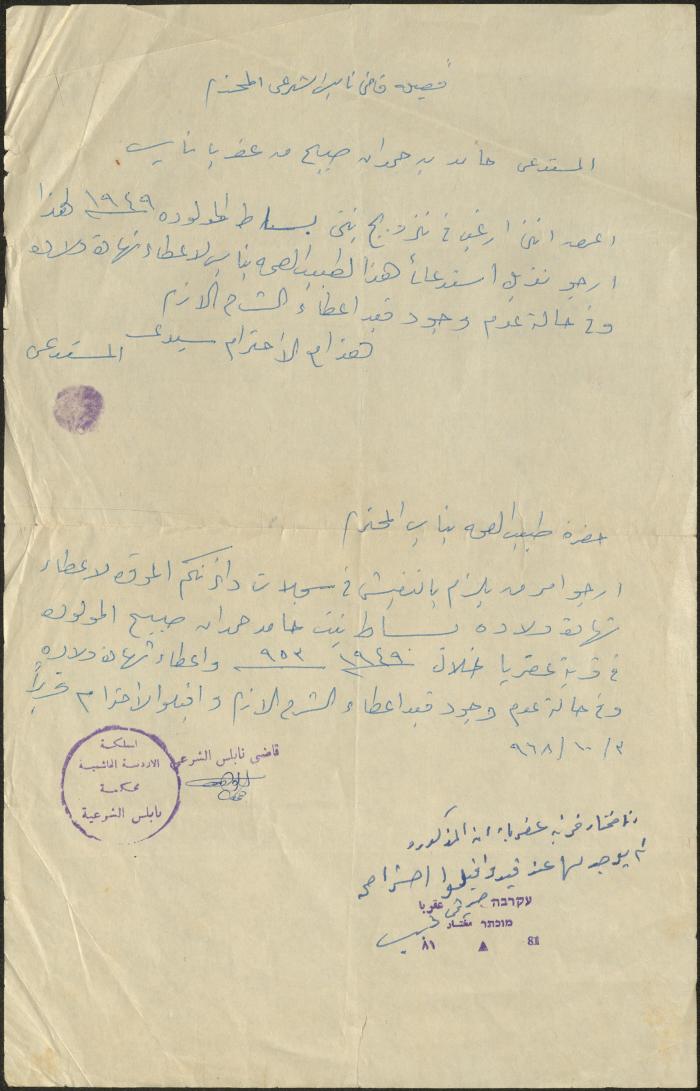 فضيلة قاضي نابلس الشرعي المحترم
المستدعي حامد بن حمدان صبيح من عقربا نابلس
اعرض انني ارغب في تزويج بنتي بساط المولوده ١٩٤٩ لهذا
ارجو تذييل استدعائي هذا لطبيب الصحه بنابلس لاعطاء شهادة ولاده
وفي حالة عدم وجود قيد اعطاء الشرح الازم
هذا مع الاحترام سيدي المستدعي
حضرة طبيب الصحه بنابلس المحترم
ارجو امر من يلزم بالتفتيش في سجلات دائرتكم الموقره لاعطاء
شهادة ولاده بساط بنت حامد حمدان صبيح المولوده
في قرية عقربا خلال ١٩٤٩ ٩٥٣ واعطاء شهادة ولاده
وفي حالة عدم وجود قيد اعطاء الشرح الازم واقبلوا الاحترام
٣/١٠/٩٦٨
قاضي نابلس الشرعي
المملكة
الاردنية الهاشمية
محكمة
نابلس الشرعية
انا مختار قرية عقربا ان المذكوره
لم يوجد لها قيد واقبلوا احترامي
עקרבה عقربا
מוכתר مختار
81 ٨١